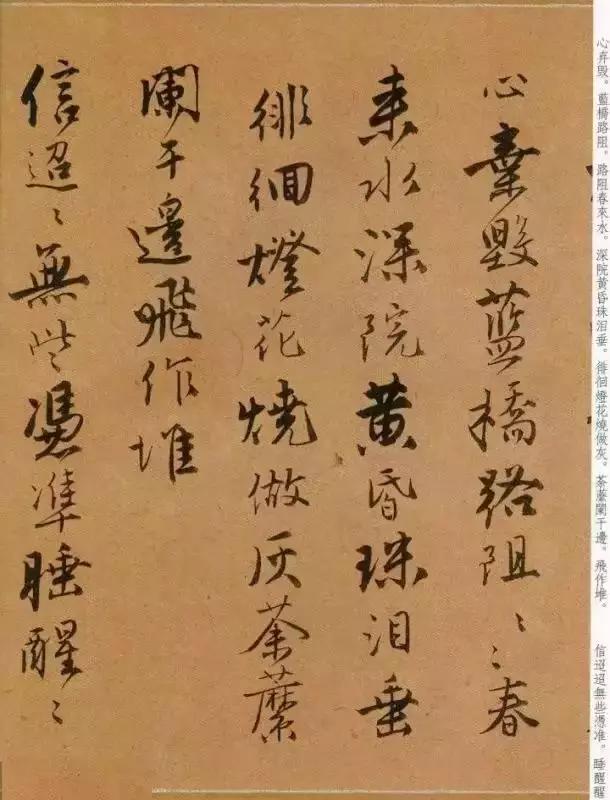 心弃毁。藍橋路阻。路阻春來水。深院黄昏珠泪垂。徘徊燈花燒做灰。荼蘼闌干邊。飛作堆。　信迢迢無些憑准。睡醒醒
心棄毀藍橋路阻〻〻春
来水深院黄昏珠泪垂
徘徊燈花燒做灰荼蘼
闌干邊飛作堆
信迢〻無些憑準睡醒〻